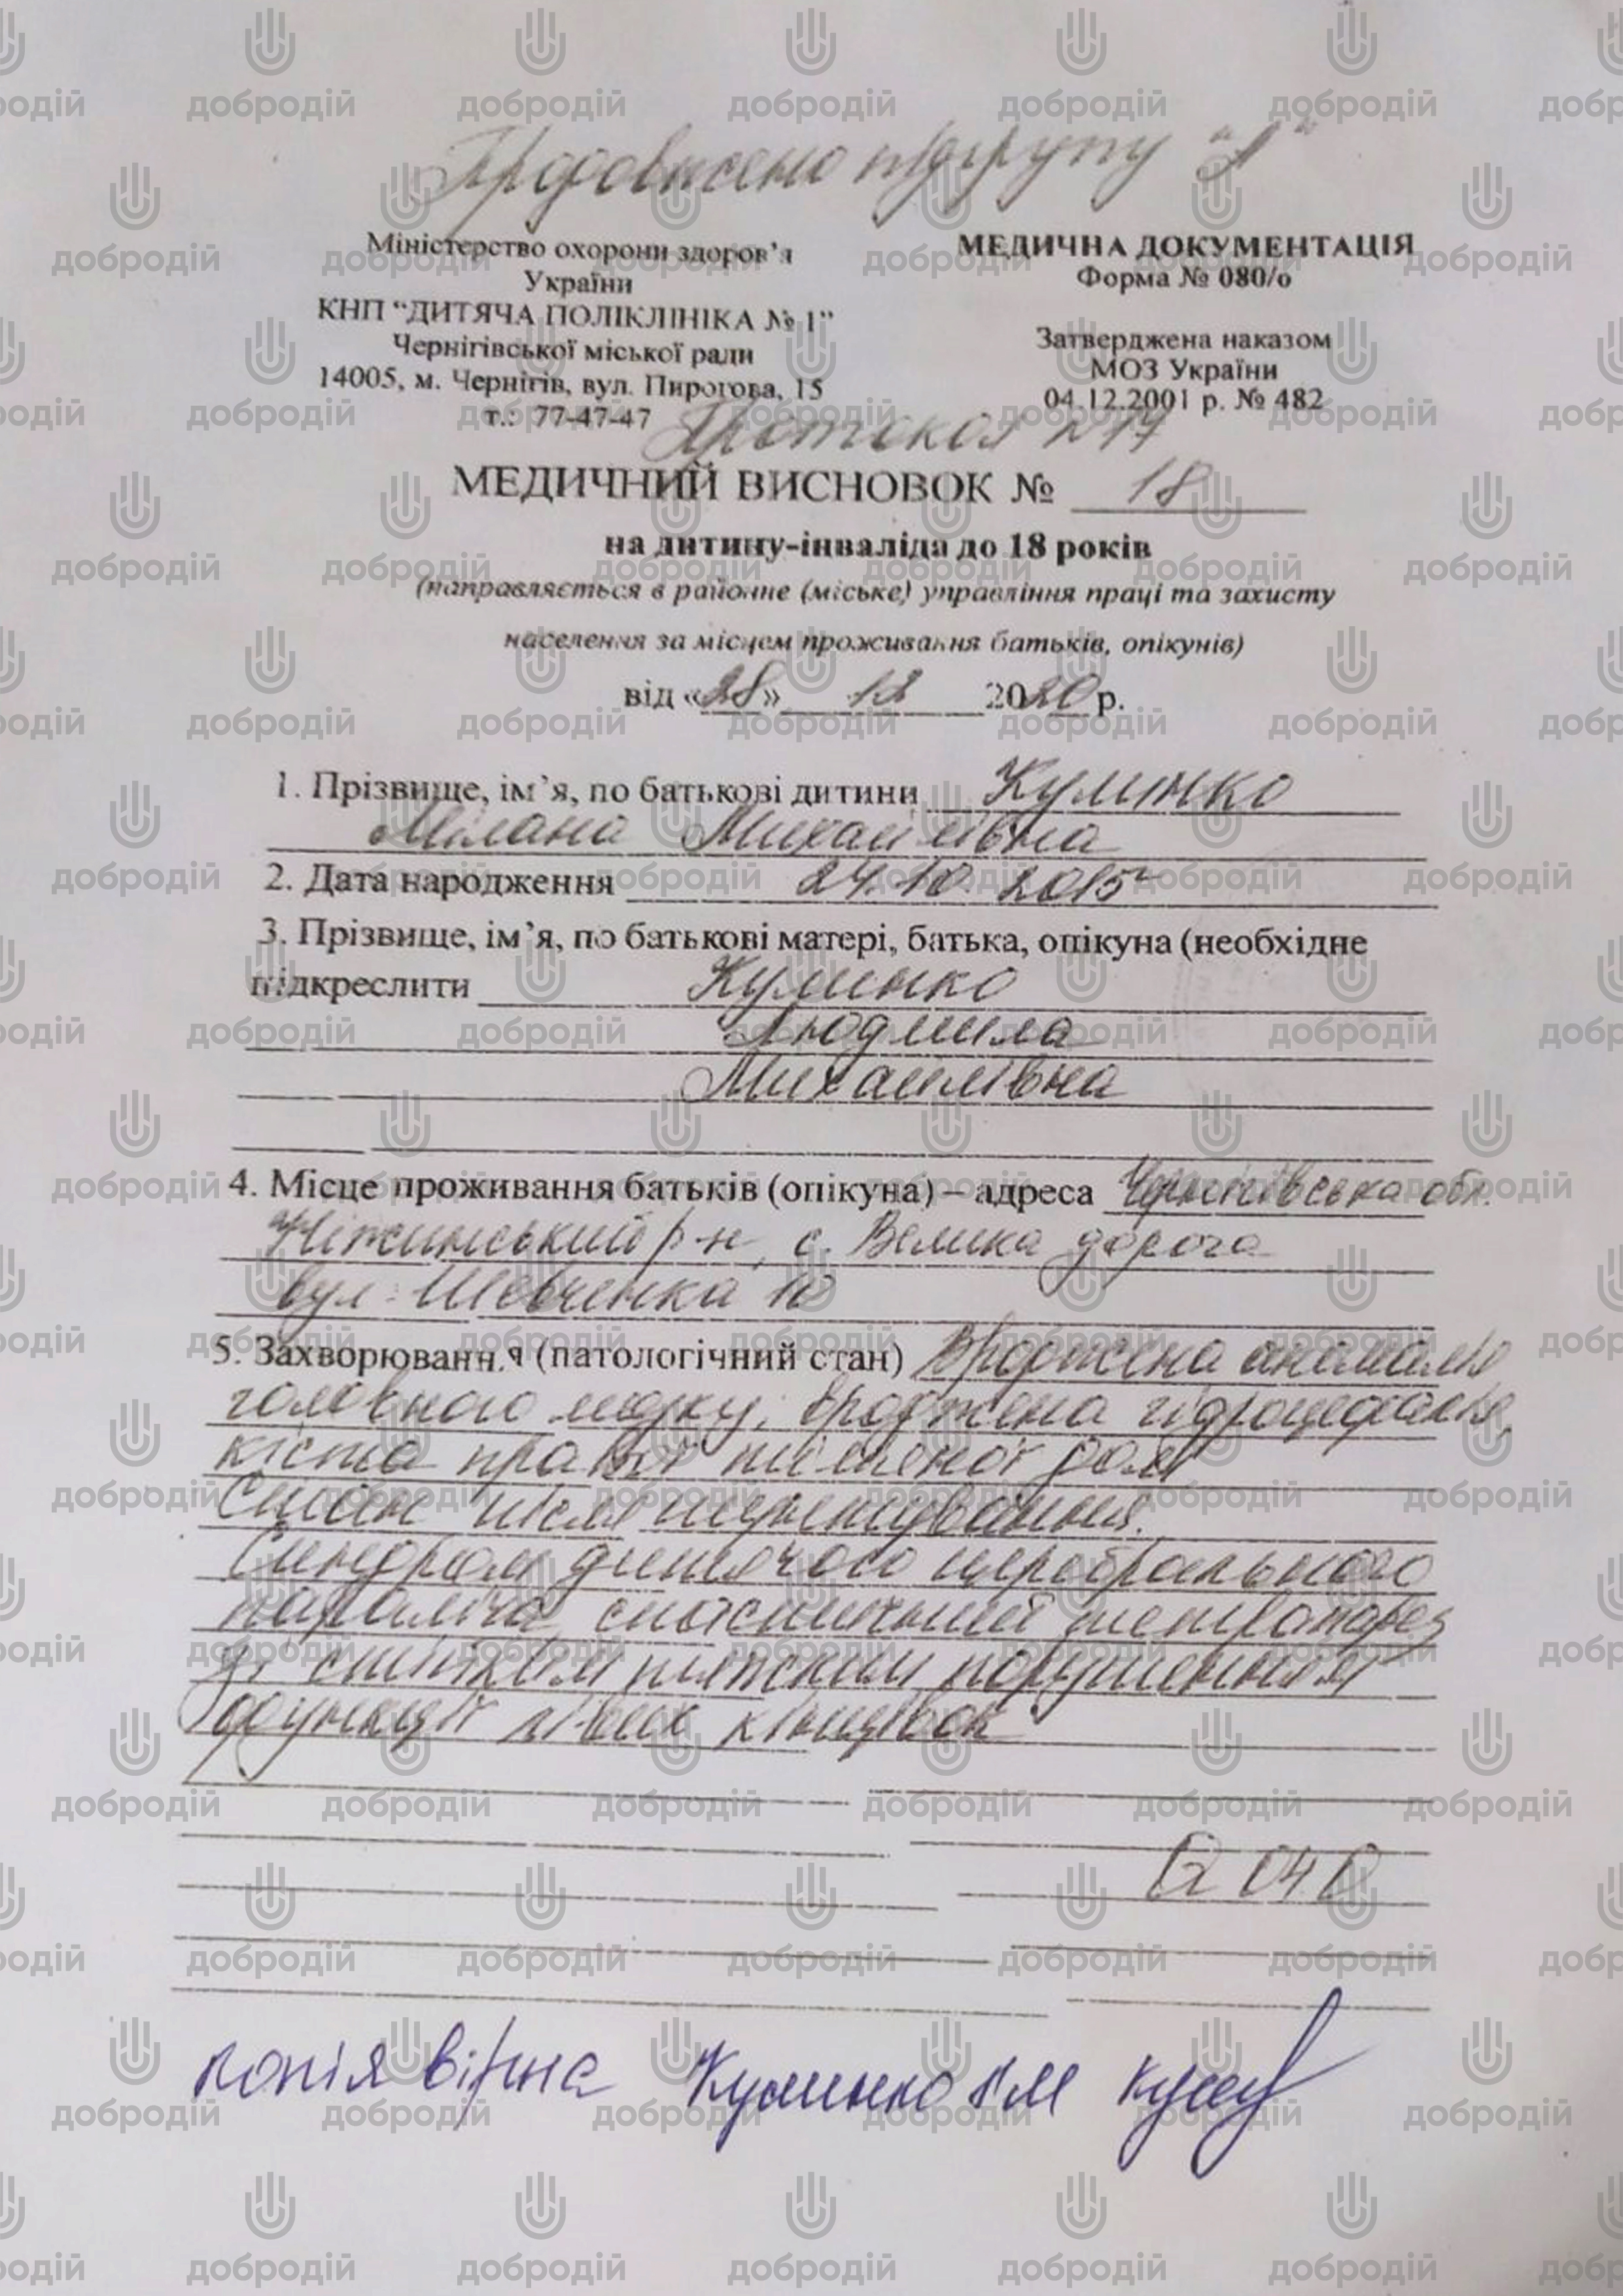 Продовжено підгрупу "А"
Міністерство охорони здоров’я
України
КНП “ДИТЯЧА ПОЛІКЛІНІКА № 1”
Чернігівської міської ради
14005, м. Чернігів, вул. Пирогова, 15
т.: 77-47-47
МЕДИЧНА ДОКУМЕНТАЦІЯ
Форма № 080/о
Затверджена наказом
МОЗ України
04.12.2001 р. № 482
Протокол №17
МЕДИЧНИЙ ВИСНОВОК № 18
на дитину-інваліда до 18 років
(направляється в районне (міське) управління праці та захисту
населення за місцем проживання батьків, опікунів)
від «28» 12 2020 р.
1. Прізвище, ім’я, по батькові дитини Кулинко
Мілана Михайлівна
2. Дата народження 24.10.2015
3. Прізвище, ім’я, по батькові матері, батька, опікуна (необхідне
підкреслити Кулинко
Людмила
Михайлівна
4. Місце проживання батьків (опікуна) – адреса Чернігівська обл.
Ніжинський р-н, с. Велика дорога
вул. Шевченка 10
5. Захворювання (патологічний стан) Вроджена аномалія
головного мозку, вроджена гідроцефалія,
кіста правої тім'яної долі
Стан після шунтування.
Синдром дитячого церебрального
параліча, спастичний тетрапарез
зі стійким порушенням
функції лівих кінцівок
G 04 0
копія вірна Кулинко Л М
добродій